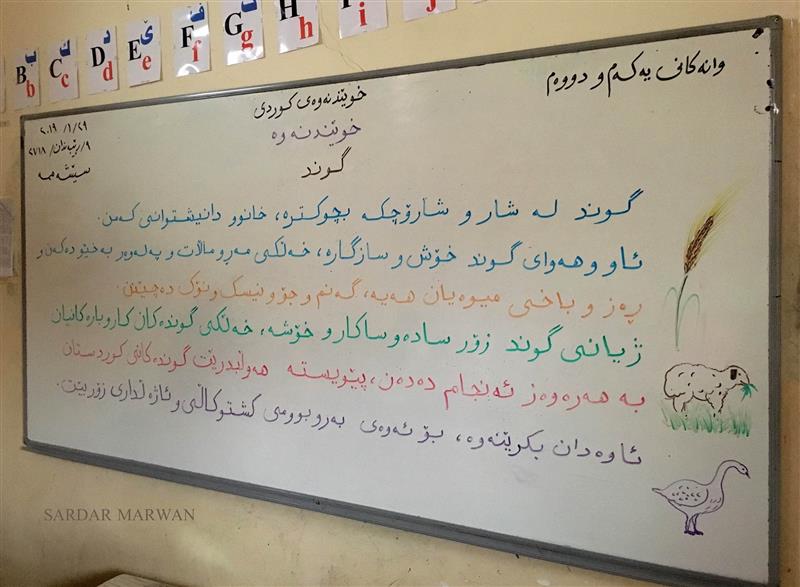 B b ب
C c ک
D d د
E e ێ
F f ف
G g
H h
i
j
وانەکانی یەکەم و دووەم
خوێندنەوەی کوردی
خوێندنەوە
گوند
٢٠١٩ /١/ ٢٩
٩/ڕێبەندان/ ٢٧١٨
سێشەممە
گوند لە شار و شارۆچکە بچوکترە، خانوو دانیشتوانی کەمن.
ئاو وهەوای گوند خۆش و سازگارە، خەڵکی مەڕوماڵات و پەلەوەر بەخێودەکەن و
ڕەز و باخی میوەیان هەیە، گەنم و جۆونیسک ونۆک دەچێنن.
ژیانی گوند زۆر سادەو ساکار و خۆشە، خەڵکی گوندەکان کاروبارەکانیان
بە هەرەوەز ئەنجام دەدەن، پێویستە هەوڵبدرێت گوندەکانی کوردستان
ئاوەدان بکرێنەوە، بۆ ئەوەی بەروبوومی کشتوکاڵی و ئاژەڵداری زۆربێت.
SARDAR MARWAN